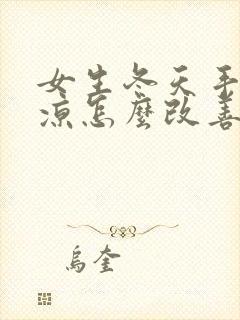 女生冬天手
凉怎麼改善
烏奎